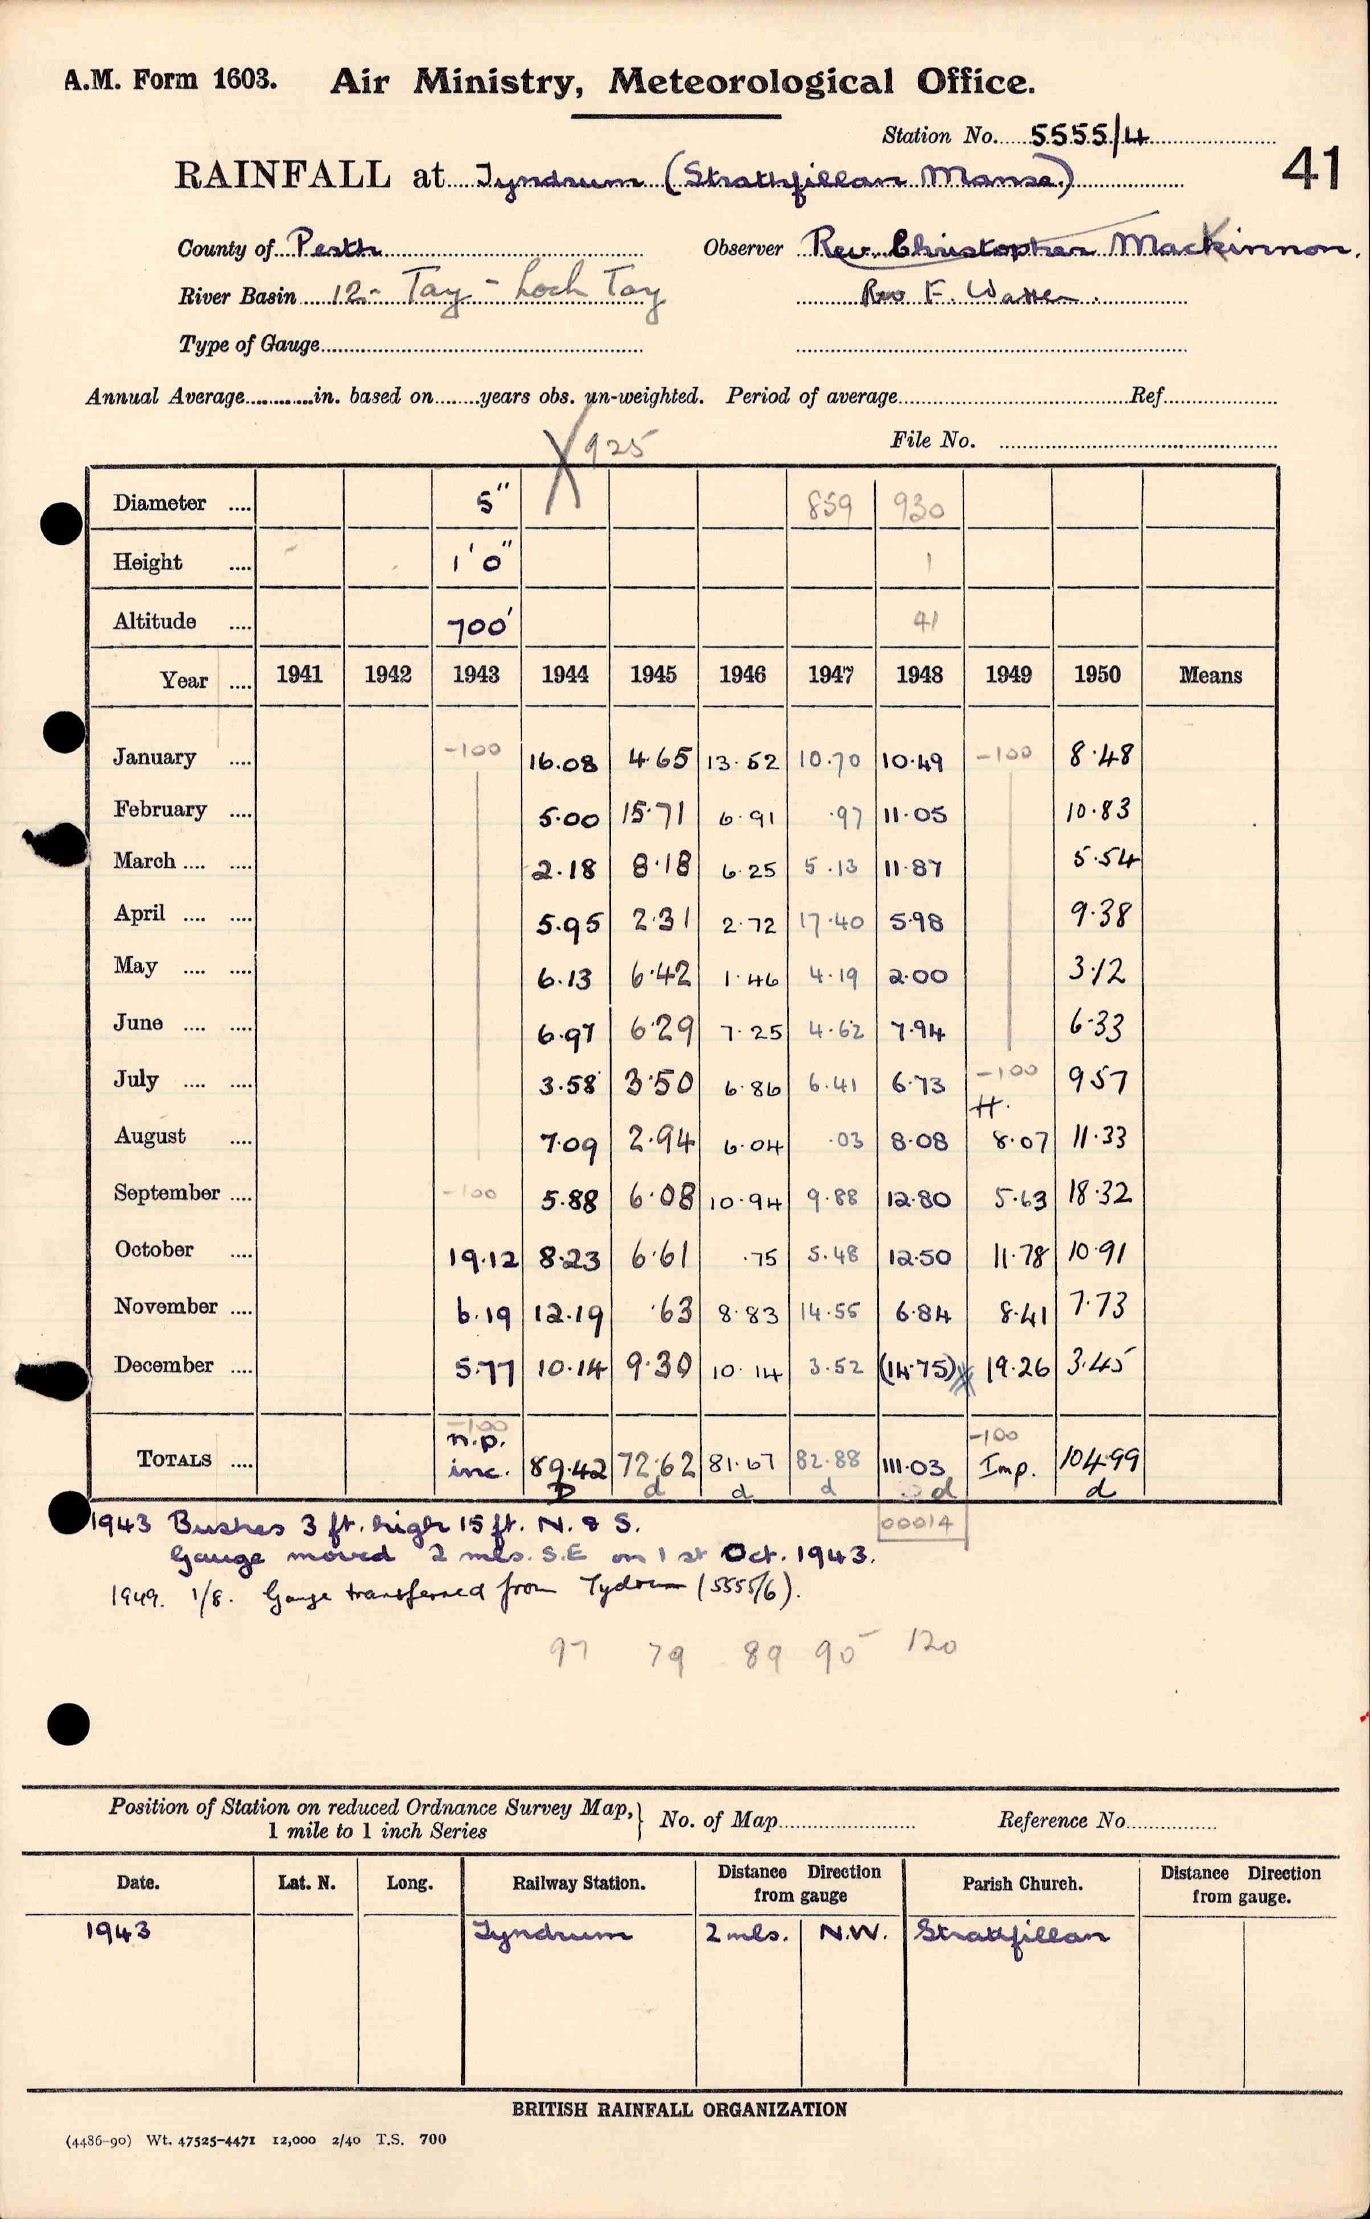 A.M. Form 1603. Air Ministry, Meteorological Office.
Station No. 5555/4
41
RAINFALL at Tyndrum (Strathfillan Manse.)
County of Perth Observer Rev. Christopher MacKinnon.
River Basin 12 - Tay - Loch Tay Rev F.
Type of Gauge
Annual Average in. based on years obs. un-weighted. Period of average Ref
X 925 File No.
Diameter .... 5" 859 930
Height .... 1' 0" 1
Altitude .... 700' 41
Year .... 1941 1942 1943 1944 1945 1946 1947 1948 1949 1950 Means
January .... -100 16.08 4.65 13.52 10.70 10.49 -100 8.48
February .... 5.00 15.71 6.91 .97 11.05 10.83
March .... .... 2.18 8.18 6.25 5.13 11.87 5.54
April .... .... 5.95 2.31 2.72 17.40 5.98 9.38
May .... .... 6.13 6.42 1.46 4.19 2.00 3.12
June .... .... 6.97 6.29 7.25 4.62 7.94 6.33
July .... .... 3.58 3.50 6.86 6.41 6.73 -100 9 57
H.
August .... 7.09 2.94 6.04 .03 8.08 8.07 11.33
September .... -100 5.88 6.08 10.94 9.88 12.80 5.63 18.32
October .... 19.12 8.23 6.61 .75 5.48 12.50 11.78 10.91
November .... 6.19 12.19 .63 8.83 14.55 6.84 8.41 7.73
December .... 5.77 10.14 9.30 10.14 3.52 (14.75) 19.26 3.45
-100 -100
TOTALS .... n.p. inc. 89.42 72.62 81.67 82.88 111.03 Imp. 104.99
D d d d d d
00014
1943 Bushes 3 ft. high 15 ft. N. & S.
Gauge moved 2 mls. S.E on 1 st Oct. 1943.
1949. 1/8. Gauge transferred from Tydrum (5555/6).
97 79 89 90 120
Position of Station on reduced Ordnance Survey Map, } No. of Map Reference No.
1 mile to 1 inch Series
Date. Lat. N. Long. Railway Station. Distance Direction from gauge Parish Church. Distance Direction from gauge.
1943 Tyndrum 2 mls. N.W. Strathfillan
BRITISH RAINFALL ORGANIZATION
(4486-90) Wt. 47525-4471 12,000 2/40 T.S. 700